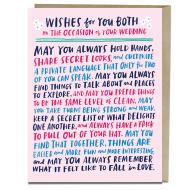 WISHES for YOU BOTH
ON the OCCASION of YOUR WEDDING
MAY YOU ALWAYS HOLD HANDS,
SHARE SECRET LOOKS, and CULTIVATE
A PRIVATE LANGUAGE THAT ONLY the TWO
OF YOU CAN SPEAK. MAY YOU ALWAYS
FIND THINGS TO TALK ABOUT and PLACES
TO EXPLORE, and MAY YOU PREFER THINGS
TO BE THE SAME LEVEL of CLEAN. MAY
YOU TAKE TURNS BEING STRONG and WEAK,
KEEP A SECRET LIST OF WHAT DELIGHTS
ONE ANOTHER, and ALWAYS HAVE A FAVOR
TO PULL OUT OF YOUR HAT. MAY YOU
FIND THAT TOGETHER, THINGS ARE
EASIER and MORE FUN and MORE INTERESTING,
and MAY YOU ALWAYS REMEMBER
WHAT IT FELT LIKE TO FALL in LOVE.